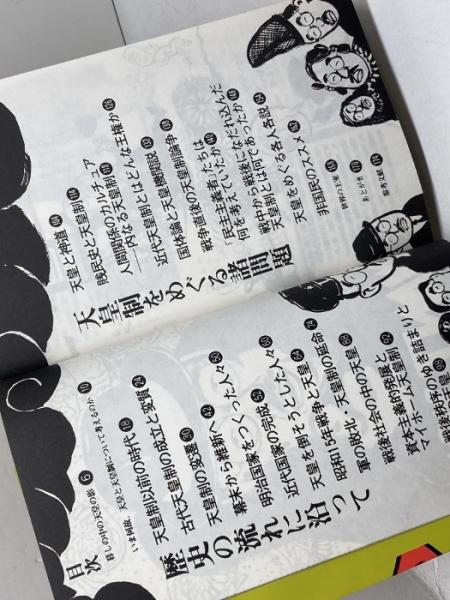 目次
暮しの中の天皇の影 6
いま何故、天皇と天皇制について考えるのか 10
歴史の流れに沿って
天皇制以前の時代 18
古代天皇制の成立と変質 24
天皇制の変遷 30
幕末から維新へ 42
明治国家をつくった人々 50
近代国家の完成
天皇を倒そうとした人々
昭和15年戦争と天皇
軍の敗北・天皇制の延命 74
戦後社会の中の天皇
資本主義的発展と
マイホーム天皇制
戦後秩序のゆき詰まりと
天皇制をめぐる諸問題
天皇と神道
賎民史と天皇制
人間関係のカルチュア
──内なる天皇制
近代天皇制とはどんな王権か
国体論と天皇機関説
戦争直後の天皇制論争
「民主主義者」たちは
何を考えていたか
戦中から戦後になだれ込んだ
天皇制とは何であったか
天皇をめぐる名人名説
非国民のススメ
世界の王室
あとがき
参考文献